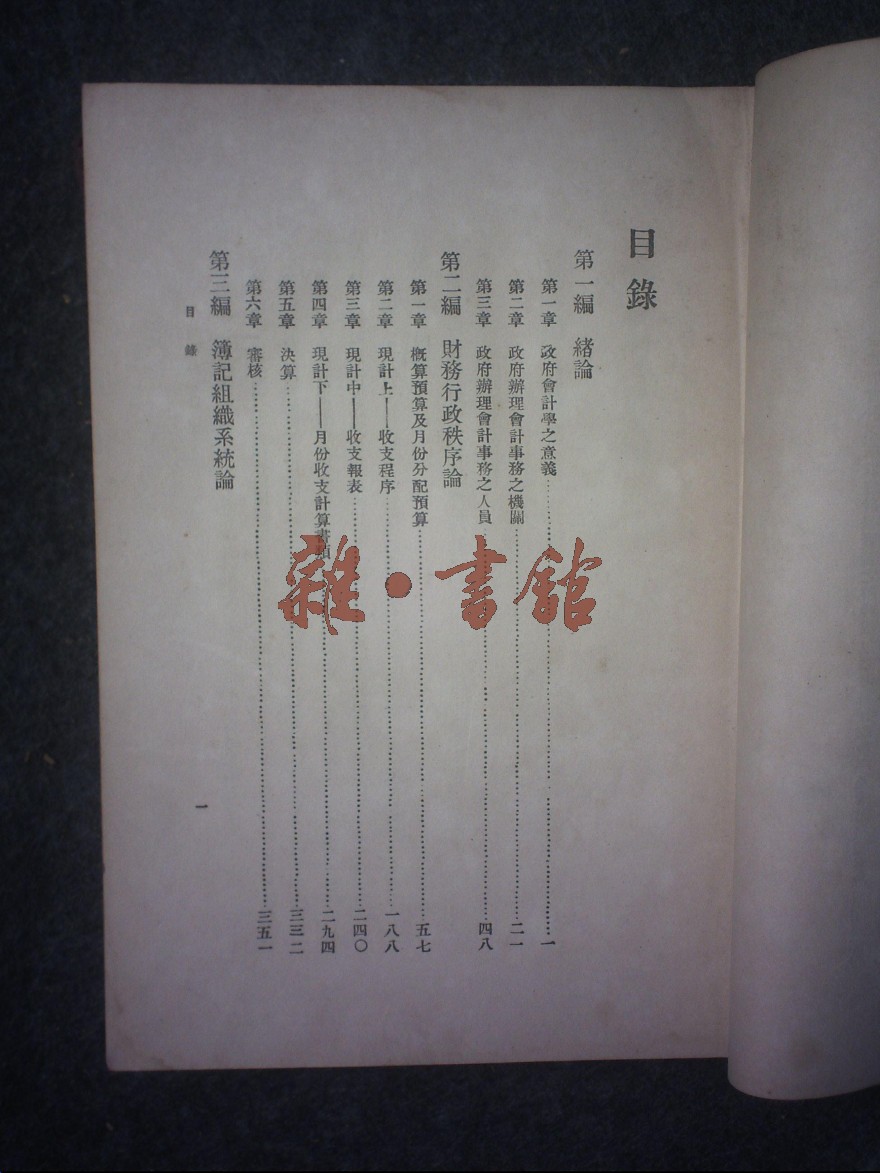 目錄
第一編 緒論
第一章 政府會計學之意義……一
第二章 政府辦理會計事務之機關……二一
第三章 政府辦理會計事務之人員……四八
第二編 財務行政秩序論
第一章 概算預算及月份分配預算……五七
第二章 現計上——收支程序……一八八
第三章 現計中——收支報表……二四〇
第四章 現計下——月份收支計算書類……二九四
第五章 決算……三三二
第六章 審核……三五一
第三編 簿記組織系統論
目錄
一
雜·書館